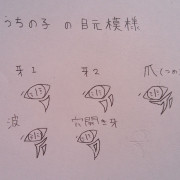 うちの子 の 目元模様
牙1 牙2 爪(つめ)
波 穴開き牙